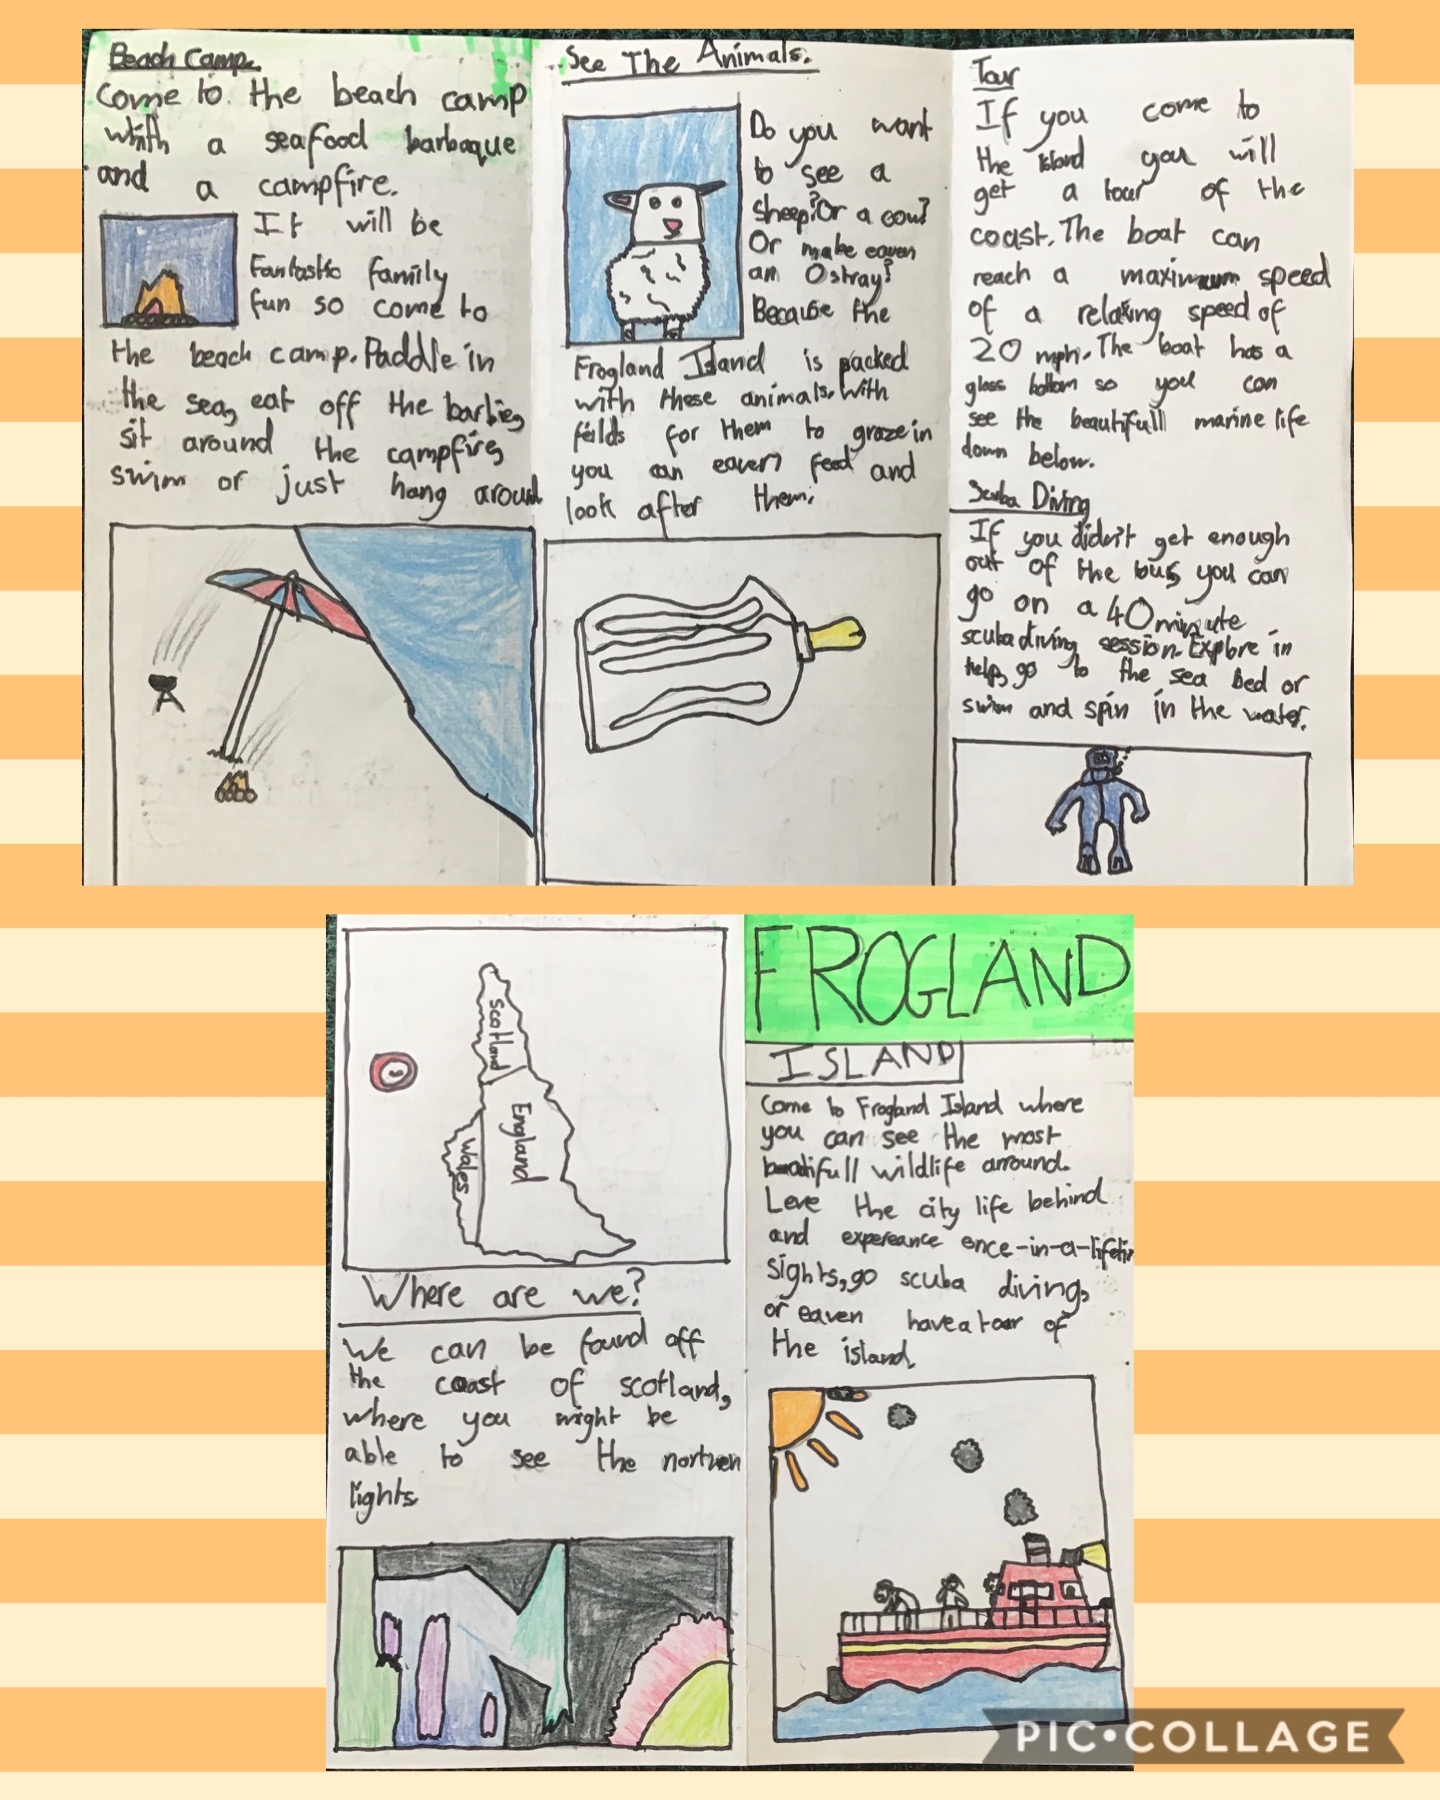 Beach Camp.
Come to the beach camp
with a seafood barbaque
and a campfire.
It will be
Fantastic family
fun so come to
the beach camp. Paddle in
the sea, eat off the barbie,
sit around the campfire,
swim or just hang around
See The Animals.
Do you want
to see a
sheep? Or a cow?
Or make eaven
an Ostray?
Because the
Frogland Island is packed
with these animals. With
feilds for them to graze in
you can eaven feed and
look after them.
Tour
If you come to
the island you will
get a tour of the
coast. The boat can
reach a maximum speed
of a relaxing speed of
20 mph. The boat has a
glass bottom so you can
see the beautifull marine life
down below.
Scuba Diving
If you didn't get enough
out of the bus, you can
go on a 40 minute
scuba diving session. Explore in
go to the sea bed or
swim and spin in the water.
Scotland
England
Wales
Where are we?
We can be found off
the coast of scotland,
where you might be
able to see the northen
lights.
FROGLAND
ISLAND
Come to Frogland Island where
you can see the most
beatifull wildlife arround.
Leve the city life behind
and expereance once-in-a-lifetim
sights, go scuba diving,
or eaven have a toar of
the island.
PIC•COLLAGE